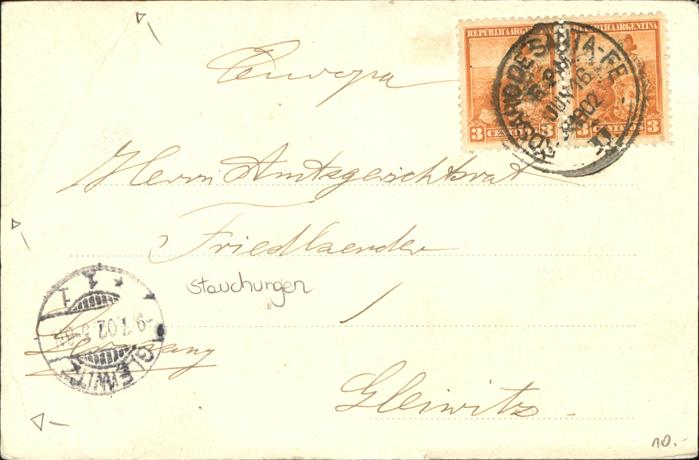 REPUBLICA ARGENTINA REPUBLICA ARGENTINA
3 CENTAVOS 3 3 CENTAVOS 3
ROSARIO DE SANTA-FE
JUN 16
1902
Europa
Herrn Amtsgerichtsrat
Friedlaender
Stauchungen
Gleiwitz.
1 * 1
GLEIWITZ
10.-